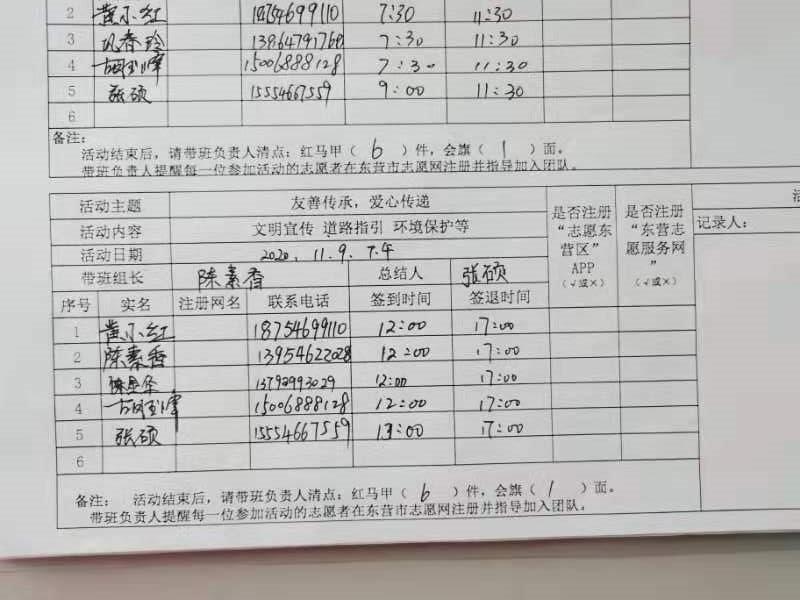 2 黄小红 18754699110 7:30 11:30
3 巩春玲 13864791768 7:30 11:30
4 胡玉峰 15006888128 7:30 11:30
5 张硕 15554667559 9:00 11:30
6
备注:
活动结束后，请带班负责人清点：红马甲（ 6 ）件，会旗（ 1 ）面。
带班负责人提醒每一位参加活动的志愿者在东营市志愿网注册并指导加入团队。
活动主题 友善传承，爱心传递
活动内容 文明宣传 道路指引 环境保护等
活动日期 2020. 11. 9. 下午
带班组长 陈素香 总结人 张硕
是否注册“志愿东营区”APP（√或×）
是否注册“东营志愿服务网”（√或×）
记录人：
序号 实名 注册网名 联系电话 签到时间 签退时间
1 黄小红 18754699110 12:00 17:00
2 陈素香 13954622028 12:00 17:00
3 13792993029 12:00 17:00
4 胡玉峰 15006888128 12:00 17:00
5 张硕 15554667559 13:00 17:00
6
备注： 活动结束后，请带班负责人清点：红马甲（ 6 ）件，会旗（ 1 ）面。
带班负责人提醒每一位参加活动的志愿者在东营市志愿网注册并指导加入团队。